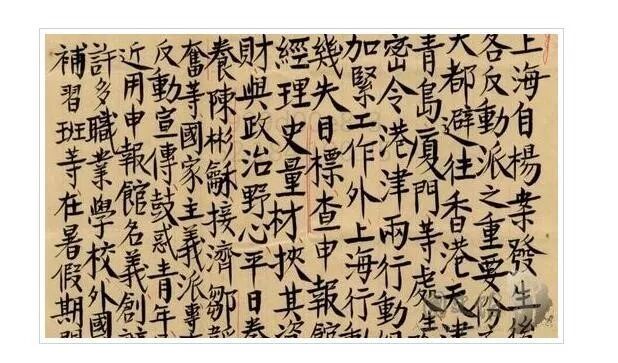 上海自楊案發生後
各反動派之重要
大都避往香港天津
青島厦門等處
密令港津兩行動組
加緊工作外上海行動
幾失目標查申報館
經理史量材挾其資
財與政治野心平日豢
養陳彬龢接濟鄒韜
奮等國家主義派專
反動宣傳鼓惑青年
近用申報館名義創
許多職業學校外國
補習班等在暑假期間